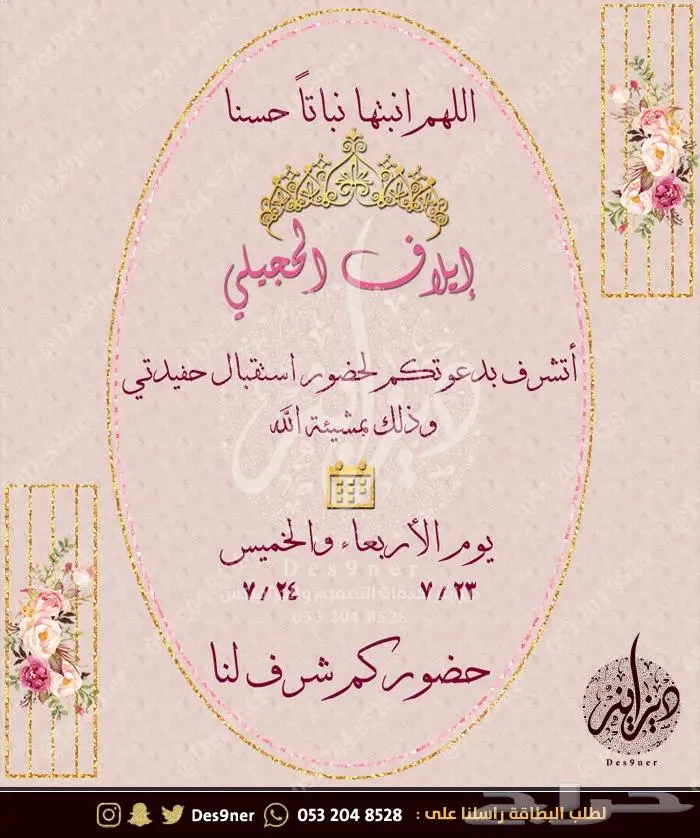 اللهم انبتها نباتاً حسنا
إيلاف الحجيلي
أتشرف بدعوتكم لحضور استقبال حفيدتي
وذلك بمشيئة الله
يوم الأربعاء والخميس
٧/٢٣ ٧/٢٤
Des9ner
053 204 8528
حضوركم شرف لنا
ديزاينر
Des9ner
لطلب البطاقة راسلنا على : 053 204 8528 Des9ner
حراج